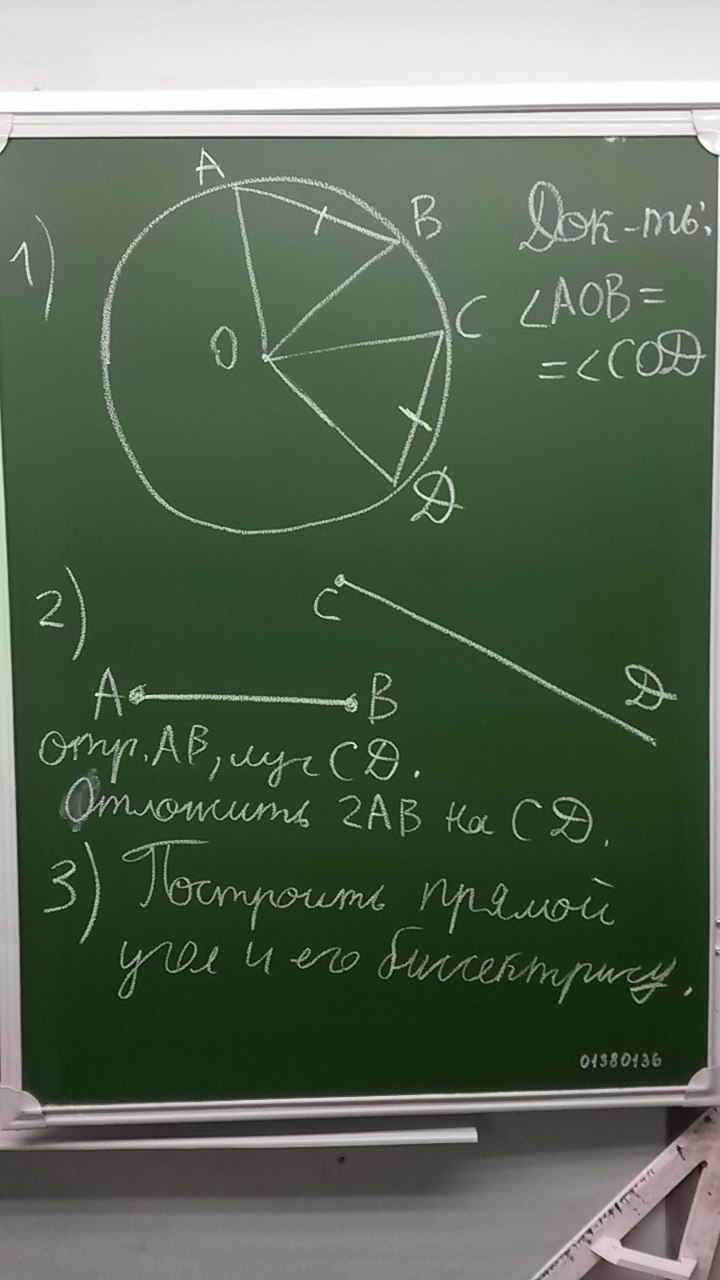 1)
A
B
C
O
D
Док-ть:
∠AOB=
=∠COD
2)
C
D
A
B
отр. AB, луч CD.
Отложить 2AB на CD.
3) Построить прямой
угол и его биссектрису.
01380136